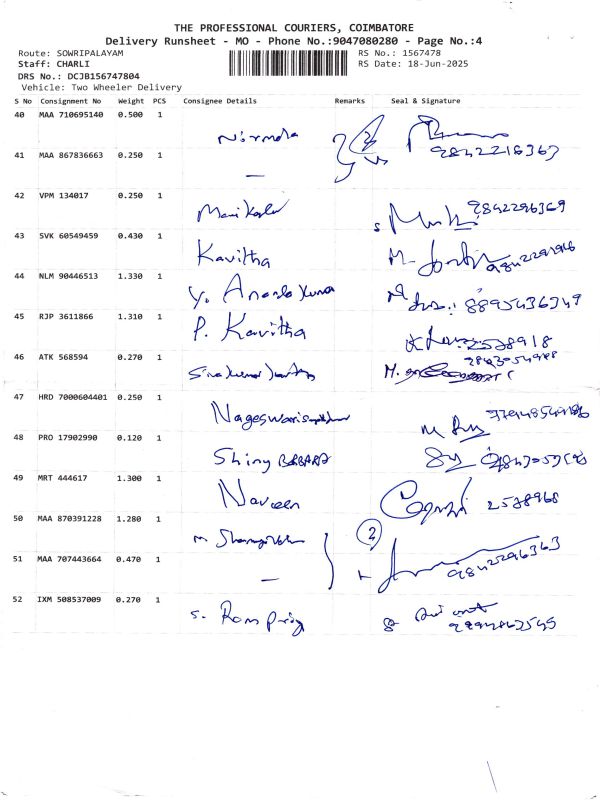 THE PROFESSIONAL COURIERS, COIMBATORE
Delivery Runsheet - MO - Phone No.:9047080280 - Page No.:4
Route: SOWRIPALAYAM RS No.: 1567478
Staff: CHARLI RS Date: 18-Jun-2025
DRS No.: DCJB156747804
Vehicle: Two Wheeler Delivery
S No Consignment No Weight PCS Consignee Details Remarks Seal & Signature
40 MAA 710695140 0.500 1 Nirmala 2
9842216363
41 MAA 867836663 0.250 1 —
42 VPM 134017 0.250 1 9842296369
43 SVK 60549459 0.430 1 Kavitha
44 NLM 90446513 1.330 1 y. Ananda Kumar 8895436349
45 RJP 3611866 1.310 1 P. Kavitha 2528918
46 ATK 568594 0.270 1
47 HRD 7000604401 0.250 1
48 PRO 17902990 0.120 1 Shiny
49 MRT 444617 1.300 1 Naveen 2528968
50 MAA 870391228 1.280 1 2
51 MAA 707443664 0.470 1 — 9842296363
52 IXM 508537009 0.270 1 S.